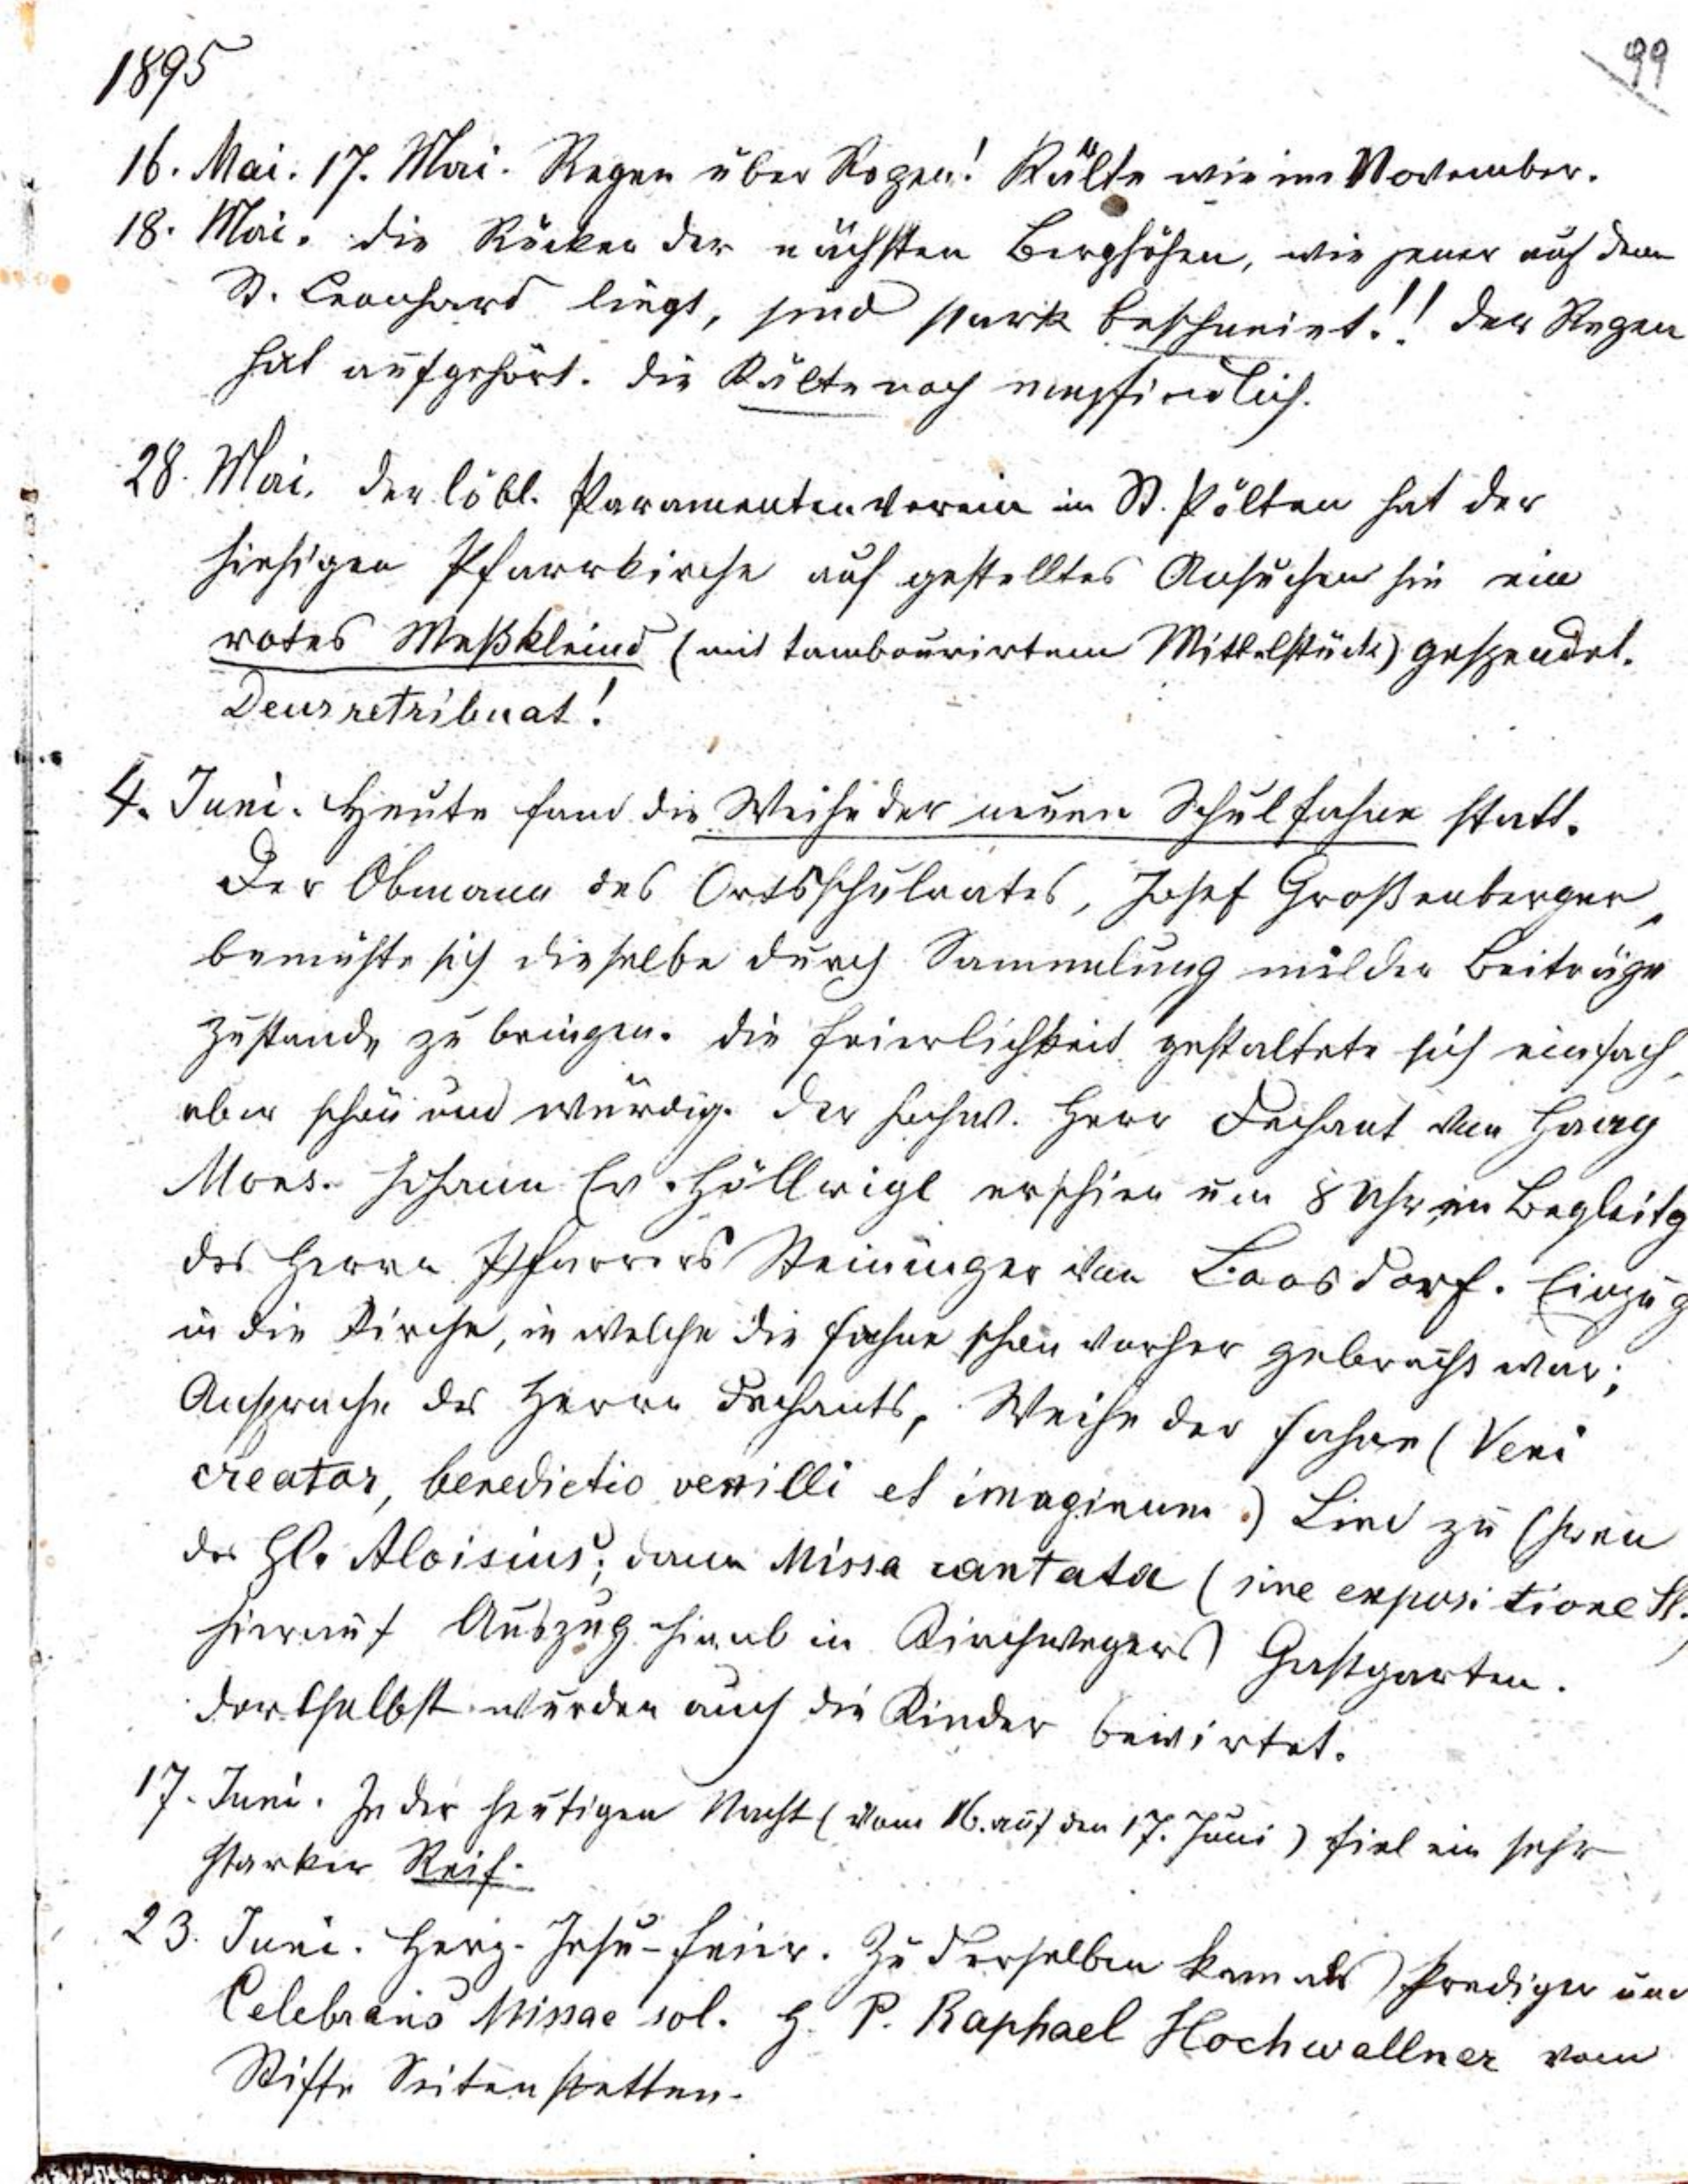 1895
99
16. Mai. 17. Mai. Regen über Regen! Kälte wie im November.
18. Mai. Die Rücken der nächsten Berghöhen, wie jener auf dem
St. Leonhard liegt, sind stark beschneiet!! Der Regen
hat aufgehört. Die Kälte noch empfindlich.
28. Mai. Der löbl. Paramentenverein in St. Pölten hat der
hiesigen Pfarrkirche auf gestelltes Ansuchen hin ein
rotes Meßkleid (mit tambourirtem Mittelstück) gespendet.
Deus retribuat!
4. Juni. Heute fand die Weihe der neuen Schulfahne statt.
Der Obmann des Ortsschulrates, Josef Großenberger,
bemühte sich dieselbe durch Sammlung milder Beiträge
zustande zu bringen. Die Feierlichkeit gestaltete sich einfach,
aber schön und würdig. Der hochw. Herr Dechant von Haag
Mons. Johann Ev. Höllrigl erschien um 8 Uhr in Begleitg
des Herrn Pfarrers Steininger von Loosdorf. Einzug
in die Kirche, in welche die Fahne schon vorher gebracht war;
Ansprache des Herrn Dechants, Weihe der Fahne (Veni
creator, benedictio vexilli et imaginum.) Lied zu Ehren
des Hl. Aloisius; dann Missa cantata (sine expositione Ss.)
hierauf Auszug hinab in Kirchwegers Gastgarten.
Dortselbst wurden auch die Kinder bewirtet.
17. Juni. In der heutigen Nacht (vom 16. auf den 17. Juni) fiel ein sehr
starker Reif.
23. Juni. Herz-Jesu-Feier. Zu derselben kam als Prediger und
Celebrans Missae sol. H. P. Raphael Hochwallner vom
Stifte Seitenstetten.